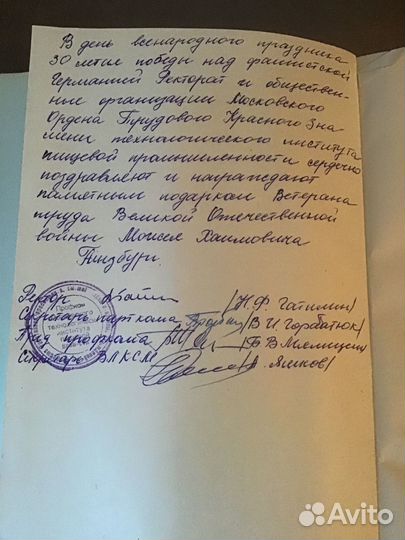 В день всенародного праздника
30 летия победы над фашистской
Германией Ректорат и обществен-
ные организации Московского
Ордена Трудового Красного Зна
мени технологического института
пищевой промышленности сердечно
поздравляют и награждают
памятным подарком Ветерана
труда Великой Отечественной
войны Моисея Хаимовича
Гинзбург.
Ректор /Н.Ф. Гатилин/
Секретарь парткома /В И Горбатюк/
Пред профкома /Б В
Секретарь ВЛКСМ /
Профком
института
Avito